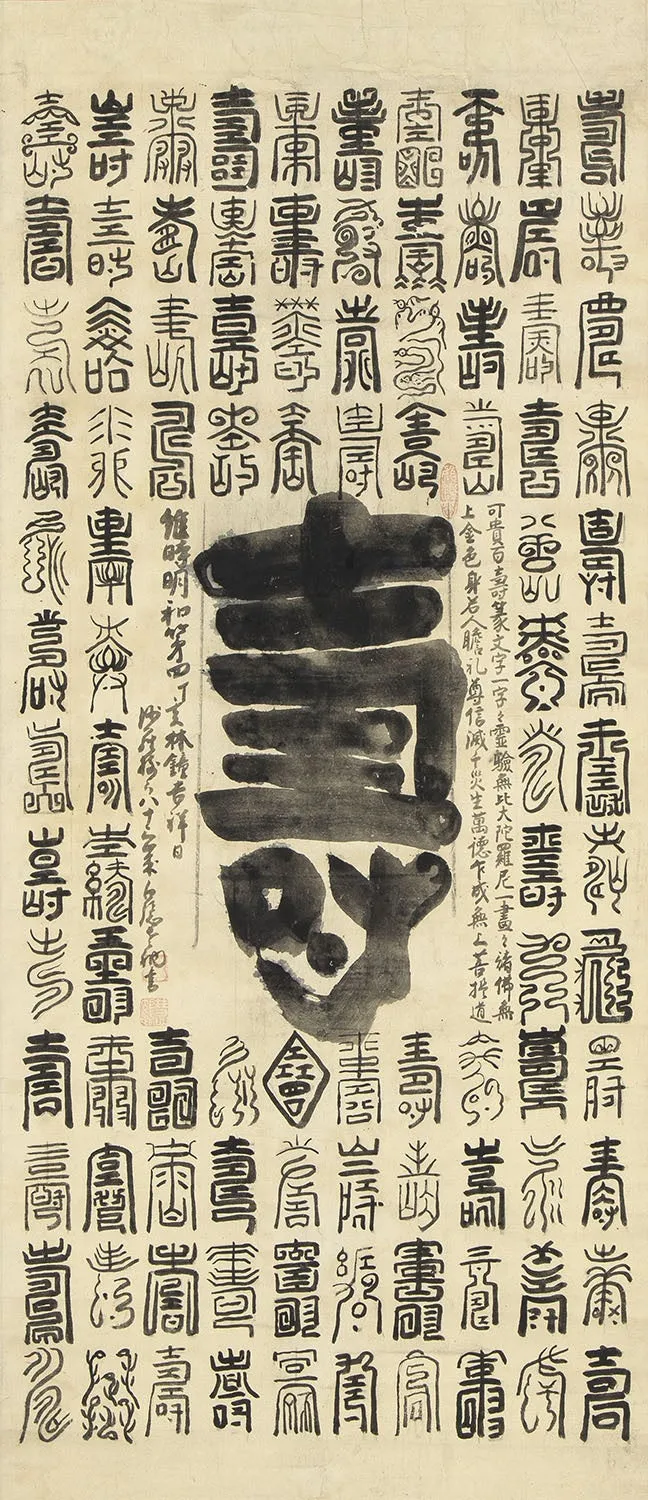 壽壽壽壽壽壽壽壽壽壽壽壽壽
壽壽壽壽壽壽壽壽壽壽壽壽壽
壽壽壽壽
壽壽壽壽
壽壽壽壽
壽壽壽壽
壽壽壽壽
壽壽壽壽
可貴百壽篆文字一字〻靈驗無比大陀羅尼一畫〻諸佛無
上金色身若人瞻礼尊信滅千災生萬德乍成無上菩提道
壽
維時明和第四丁亥林鐘吉祥日
沙羅樹下八十三歳白隠老衲書
壽壽壽壽
壽壽壽壽
壽壽壽壽
壽壽壽壽
壽壽壽壽
壽壽壽壽
壽壽壽壽壽壽壽壽壽壽壽壽壽
壽壽壽壽壽壽壽壽壽壽壽壽壽